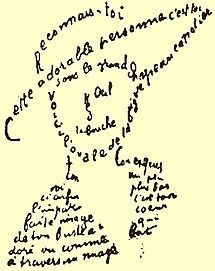 Reconnais-toi
Cette adorable personne c'est toi
sous le grand chapeau canotier
Oeil
Nez
la bouche
Voici l'ovale de ta figure
ton
cou exquis
Voi
ci enfin
l'impar
faite image
de ton buste a
doré vu comme
à travers un nuage
un peu
plus bas
c'est ton
coeur
qui
bat